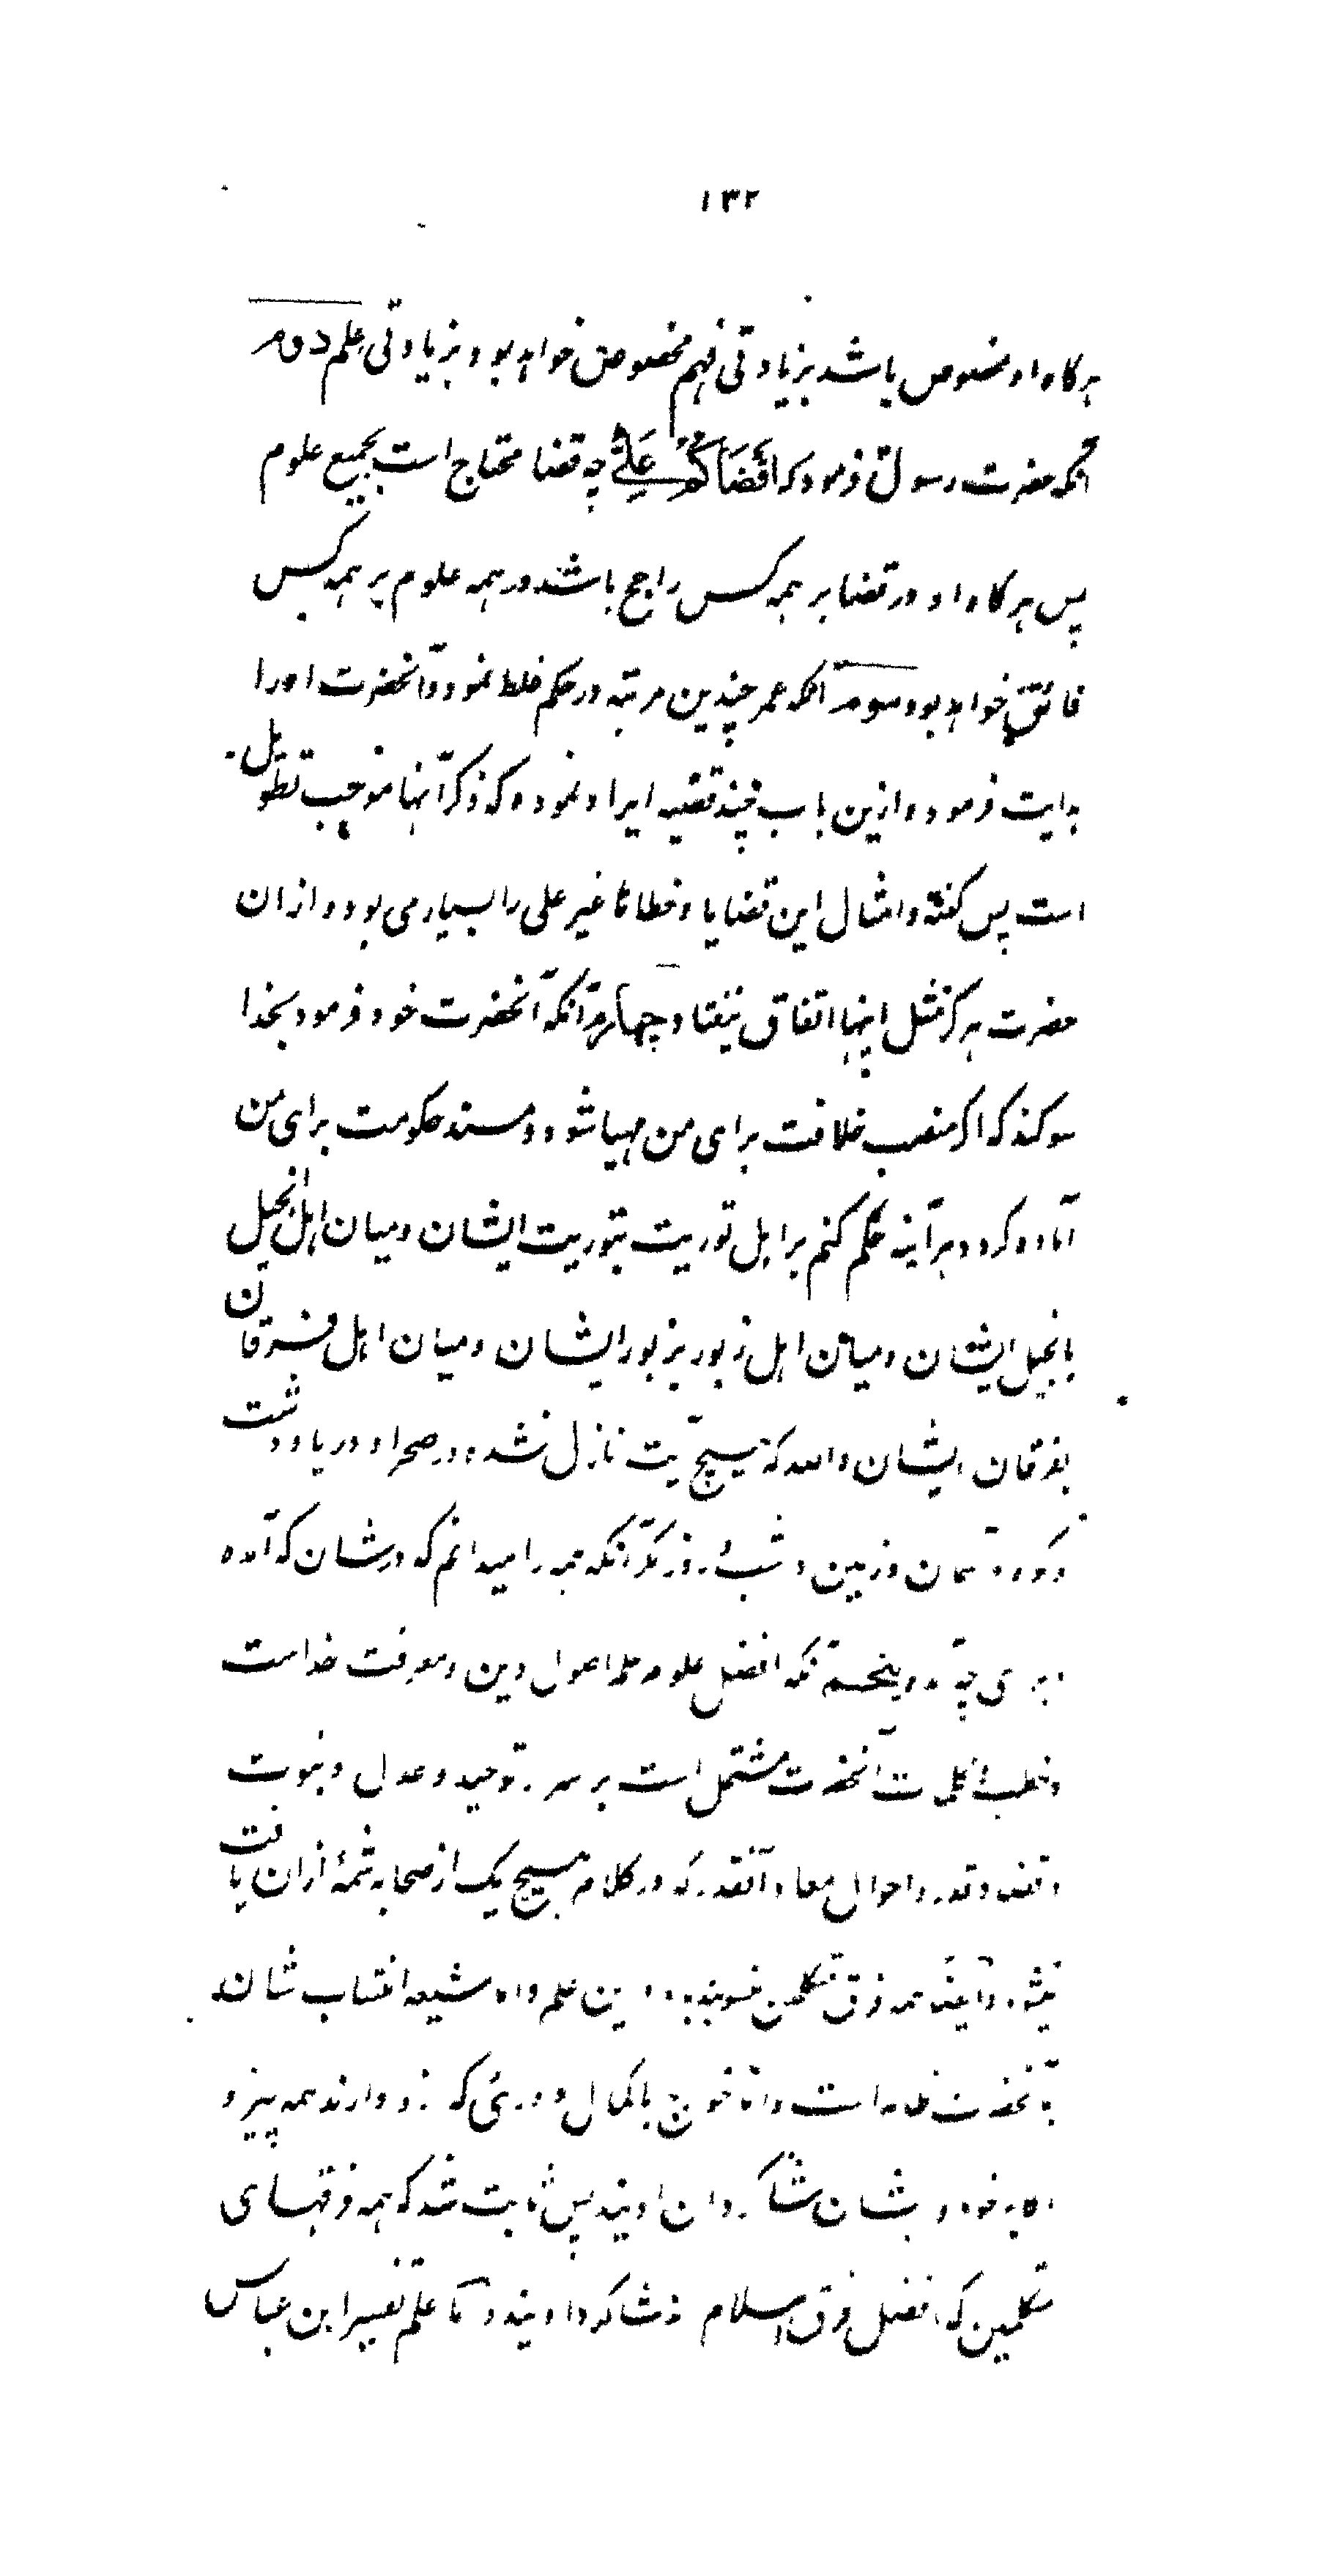 ۱۳۲
هرگاه او مخصوص باشد بزیادتی فهم مخصوص خواهد بود بزیادتی علم دوم
آنکه حضرت رسول فرمود که اَقْضَاکُمْ عَلِیٌّ چه قضا محتاج است بجمیع علوم
پس هرگاه او در قضا بر همه کس راجح باشد در همه علوم بر همه کس
فائق خواهد بود سوم آنکه عمر چندین مرتبه در حکم غلط نمود و آنحضرت او را
هدایت فرمود و ازین باب چند قضیه ایراد نموده که ذکر آنها موجب تطویل
است پس گفته و امثال این قضایا و خطاها غیر علی را بسیار می بود و از ان
حضرت هرگز مثل اینها اتفاق نیفتاد چهارم آنکه آنحضرت خود فرمود بخدا
سوگند که اگر منصب خلافت برای من مهیا شود و مسند حکومت برای من
آماده گردد هرآینه حکم کنم بر اهل توریت بتوریت ایشان و میان اهل انجیل
بانجیل ایشان و میان اهل زبور بزبور ایشان و میان اهل فرقان
بفرقان ایشان والله که هیچ آیت نازل نشده در صحرا و دریا و دشت
و کوه و آسمان و زمین و شب و روز مگر آنکه همه را میدانم که در شان که آمده
و برای چه آمده و پنجم آنکه افضل علوم علم اصول دین و معرفت خداست
و خطب و کلمات آنحضرت مشتمل است بر اسرار توحید و عدل و نبوت
و قضا و قدر و احوال معاد آنقدر که در کلام هیچ یک از صحابه شمهٔ از ان یافت
نیشود و ایضا همه فرق متکلمین منسوبند در این علم اما شیعه انتساب شان
بآنحضرت ظاهر است و اما خوارج باکمال دوری که ازو دارند همه پیرو
اکابر خود و ایشان شاگردان اویند پس ثابت شد که همه فرقهای
متکلمین که افضل فرق اسلام اند شاگرد اویند و اما علم تفسیر ابن عباس